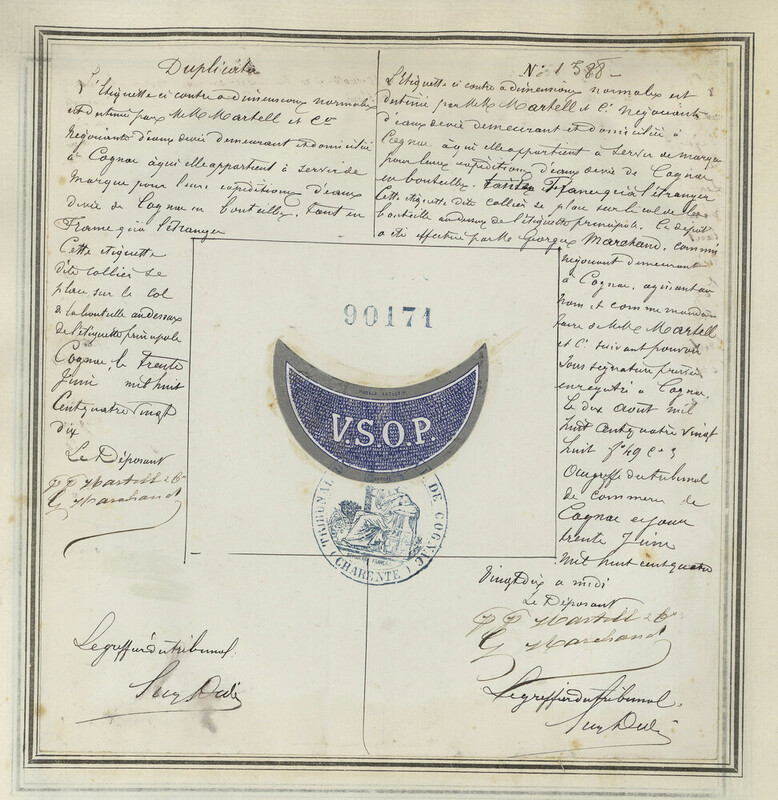 Duplicata
L'Etiquette ci contre a dimensions normales
est destinée par MM. Martell et Cie
Négociants d'eaux devie demeurant et domiciliés
à Cognac à qui elle appartient à servir de
Marque pour leurs expéditions d'eaux
devie de Cognac en bouteilles, tant en
France qu'à l'étranger
Cette étiquette
dite collier se
place sur le col
de la bouteille au dessus
de l'étiquette principale
Cognac, le trente
Juin mil huit
Cent quatre vingt
dix
Le Déposant
PP Martell & Co
G Marchand
Le greffier du tribunal
No 1388
L'Etiquette ci contre a dimensions normales est
destinée par MM Martell et Cie Négociants
d'eaux devie demeurant et domiciliés à
Cognac à qui elle appartient à servir de marque
pour leurs expéditions d'eaux devie de Cognac
en bouteilles, tant en France qu'à l'étranger
Cette étiquette dite collier se place sur le col de la
bouteille au dessus de l'étiquette principale. Ce dépôt
a été effectué par Mr Georges Marchand, commis
négociant demeurant
à Cognac, agissant au
nom et comme mandataire
de MM Martell
et Cie suivant pouvoir
sous signature privée
enregistré à Cognac,
le dix août mil
huit cent quatre vingt
huit fo 49 co 3
Au greffe du tribunal
de commerce de
Cognac ce jour
trente Juin
mil huit cent quatre
Vingt Dix a midi
Le Déposant
PP Martell & Co
G Marchand
Le greffier du tribunal
90171
V.S.O.P.
TRIBUNAL DE COGNAC
(CHARENTE)